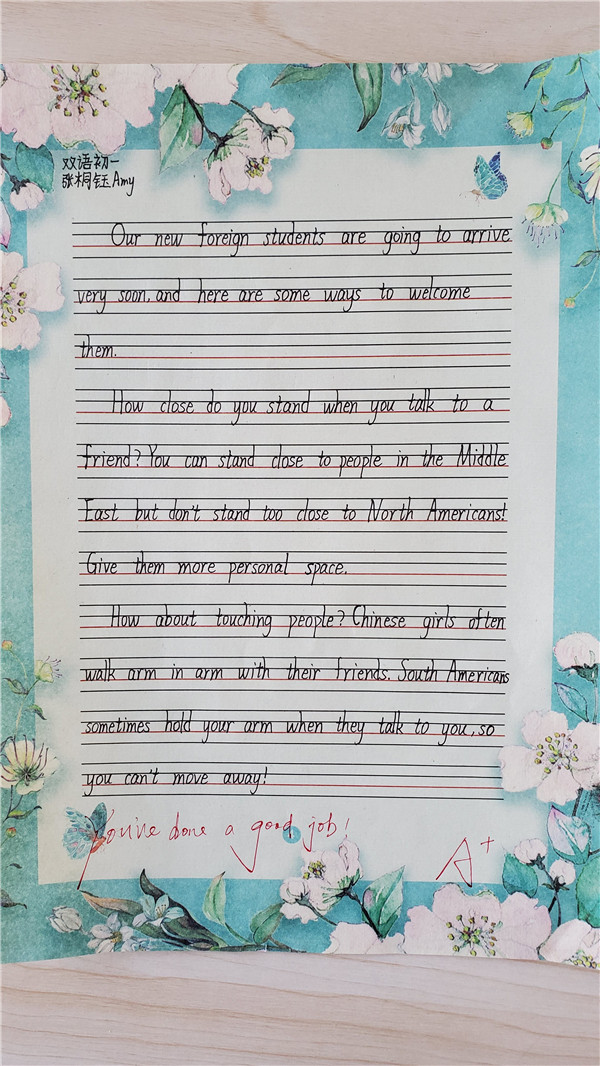 双语初一
张桐钰 Amy
Our new foreign students are going to arrive
very soon, and here are some ways to welcome
them.
How close do you stand when you talk to a
friend? You can stand close to people in the Middle
East but don't stand too close to North Americans!
Give them more personal space.
How about touching people? Chinese girls often
walk arm in arm with their friends. South Americans
sometimes hold your arm when they talk to you, so
you can't move away!
You've done a good job!
A+